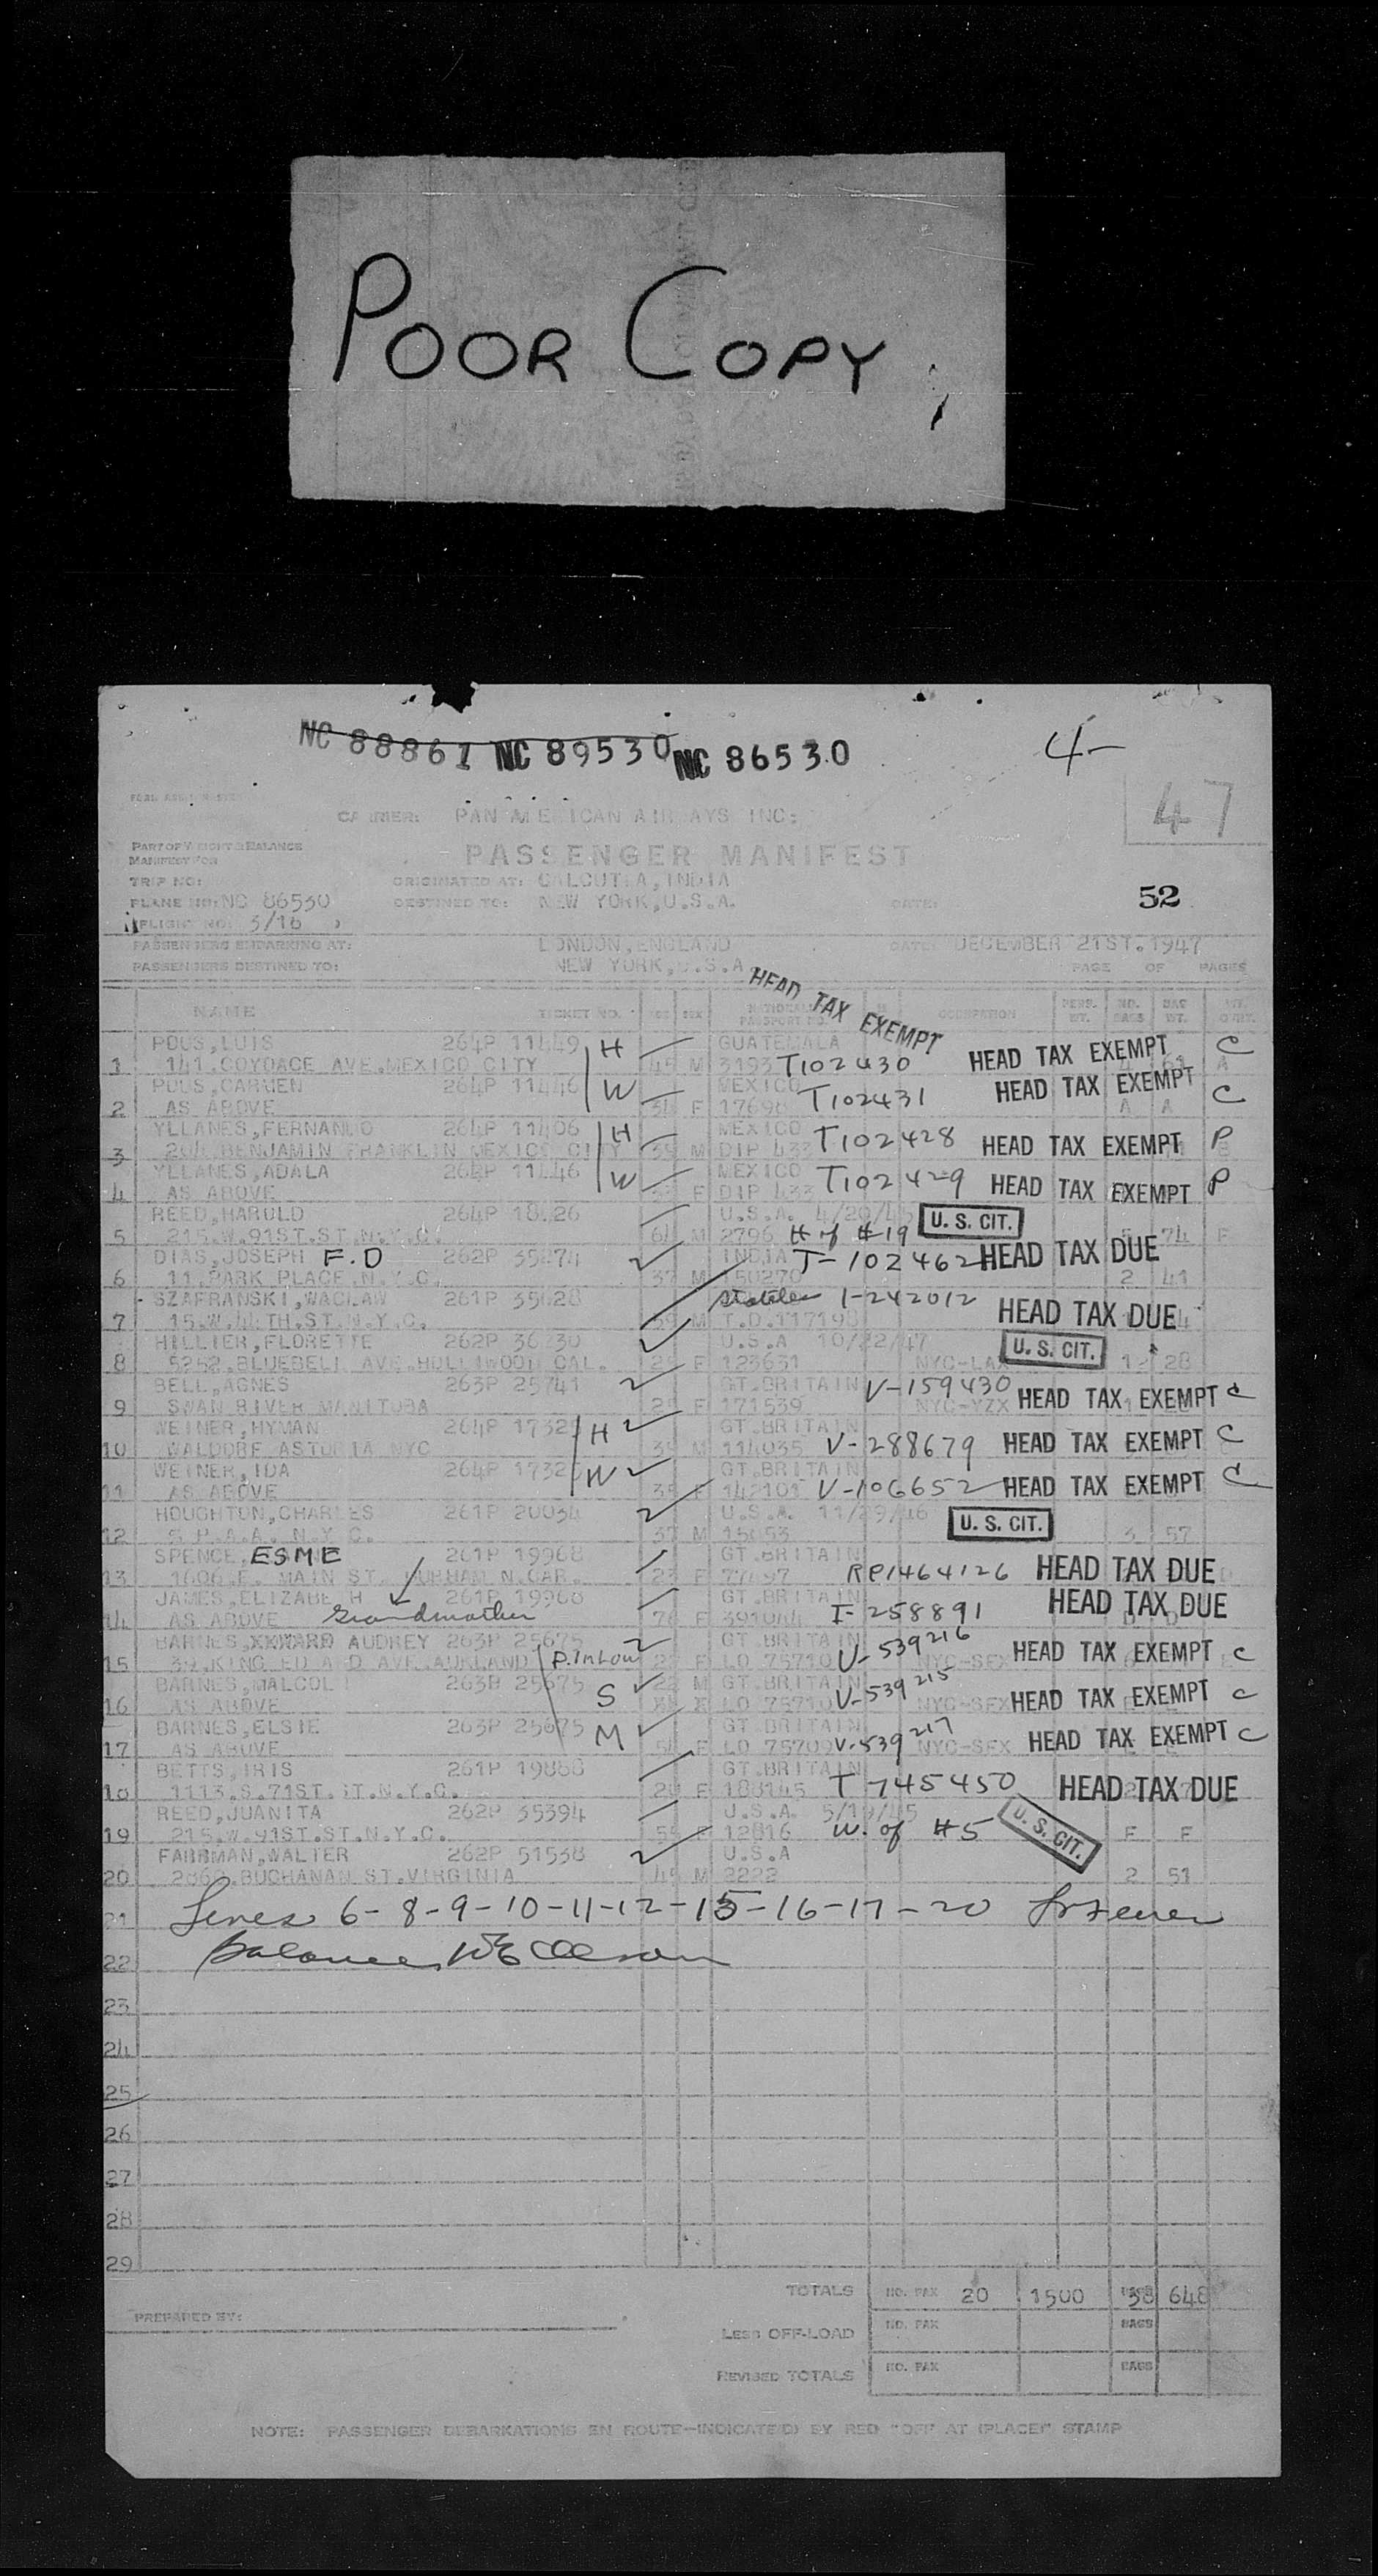 POOR COPY
NC 88861 NC 89530 NC 86530
4-
47
CARRIER: PAN AMERICAN AIRWAYS INC:
PART OF WEIGHT & BALANCE
MANIFEST FOR
PASSENGER MANIFEST
TRIP NO:
ORIGINATED AT: CALCUTTA, INDIA
PLANE NO: NC 86530
DESTINED TO: NEW YORK, U.S.A.
DATE:
52
FLIGHT NO: 3/16
PASSENGERS EMBARKING AT: LONDON, ENGLAND DATE: DECEMBER 21ST. 1947
PASSENGERS DESTINED TO: NEW YORK, U.S.A. PAGE OF PAGES
HEAD TAX EXEMPT
NAME TICKET NO. AGE SEX NATIONALITY PASSPORT NO. OCCUPATION PERS. WT. NO. BAGS BAG WT.
POUS, LUIS 264P 11449 H GUATEMALA
1 141. COYOACE AVE. MEXICO CITY 45 M 3193 T102430 HEAD TAX EXEMPT C
POUS, CARMEN 264P 11446 W MEXICO
2 AS ABOVE F 17698 T102431 HEAD TAX EXEMPT A A C
YLLANES, FERNANDO 264P 11406 H MEXICO
3 204. BENJAMIN FRANKLIN MEXICO CITY M DIP 433 T102428 HEAD TAX EXEMPT P
YLLANES, ADALA 264P 11446 W MEXICO
4 AS ABOVE F DIP 433 T102429 HEAD TAX EXEMPT P
REED, HAROLD 264P 18426 U.S.A. 4/20/45 U.S. CIT.
5 215. W. 91ST. ST. N.Y.C. 64 M 2796 H of #19 5 74 F
DIAS, JOSEPH F.D 262P 35274 INDIA T-102462 HEAD TAX DUE
6 11. PARK PLACE. N.Y.C. 37 M 150270 2 41
SZAFRANSKI, WACLAW 261P 35628 stateless I-242012
7 15. W. 44TH. ST. N.Y.C. 39 M T.D.117198 HEAD TAX DUE
HILLIER, FLORETTE 262P 36730 U.S.A 10/22/47 U.S. CIT.
8 5252. BLUEBELL AVE. HOLLIWOOD CAL. F 123631 NYC-LAX 1 28
BELL, AGNES 263P 25741 GT. BRITAIN V-159430
9 SWAN RIVER MANITOBA F 171539 NYC-YZX HEAD TAX EXEMPT C
WEINER, HYMAN 264P 17325 H GT. BRITAIN
10 WALDORF ASTORIA NYC M 114035 V-288679 HEAD TAX EXEMPT C
WEINER, IDA 264P 17326 W GT. BRITAIN
11 AS ABOVE 142101 V-106652 HEAD TAX EXEMPT C
HOUGHTON, CHARLES 261P 20034 U.S.A. 11/29/46 U.S. CIT.
12 P.A.A. N.Y.C. 37 M 15653 3 57
SPENCE, ESME 261P 19968 GT. BRITAIN
13 1606. E. MAIN ST. DURHAM N. CAR. 23 F 77497 RP1464126 HEAD TAX DUE
JAMES, ELIZABETH 261P 19968 GT. BRITAIN
14 AS ABOVE Grandmother 76 F 391044 I-258891 HEAD TAX DUE
BARNES, AUDREY 263P 25675 GT. BRITAIN
15 39. KING EDWARD AVE. AUKLAND D. in Law F LO 75710 V-539216 NYC-SFX HEAD TAX EXEMPT C
BARNES, MALCOLM 263P 25675 22 M GT. BRITAIN
16 AS ABOVE S LO 75710 V-539215 NYC-SFX HEAD TAX EXEMPT C
BARNES, ELSIE 263P 25675 GT. BRITAIN
17 AS ABOVE M F LO 75709 V-539217 NYC-SFX HEAD TAX EXEMPT C
BETTS, IRIS 261P 19888 GT. BRITAIN
18 1113. S. 71ST. ST. N.Y.C. F 188145 T-745450 HEAD TAX DUE
REED, JUANITA 262P 35394 U.S.A. 5/19/45
19 215. W. 91ST. ST. N.Y.C. 12816 W. of #5 U.S. CIT. F F
FARRMAN, WALTER 262P 51538 U.S.A
20 BUCHANAN ST. VIRGINIA 45 M 2222 2 51
21 Lines 6-8-9-10-11-12-15-16-17-20
22 Balance
23
24
25
26
27
28
29
TOTALS NO. PAX 20 1500 BAGS 38 648
PREPARED BY:
LESS OFF-LOAD NO. PAX BAGS
REVISED TOTALS NO. PAX BAGS
NOTE: PASSENGER DEBARKATIONS EN ROUTE-INDICATE(D) BY RED "OFF AT (PLACE)" STAMP